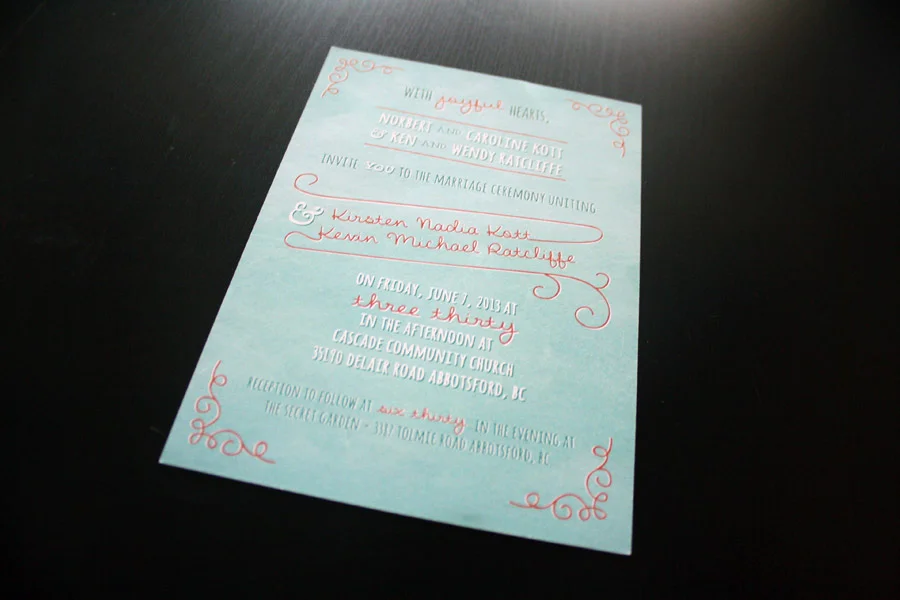 WITH joyful HEARTS,
NORBERT AND CAROLINE KOTT
& KEN AND WENDY RATCLIFFE
INVITE YOU TO THE MARRIAGE CEREMONY UNITING
& Kirsten Nadia Kott
Kevin Michael Ratcliffe
ON FRIDAY, JUNE 7, 2013 AT
three thirty
IN THE AFTERNOON AT
CASCADE COMMUNITY CHURCH
35190 DELAIR ROAD ABBOTSFORD, BC
RECEPTION TO FOLLOW AT six thirty IN THE EVENING AT
THE SECRET GARDEN - TOLMIE ROAD ABBOTSFORD, BC